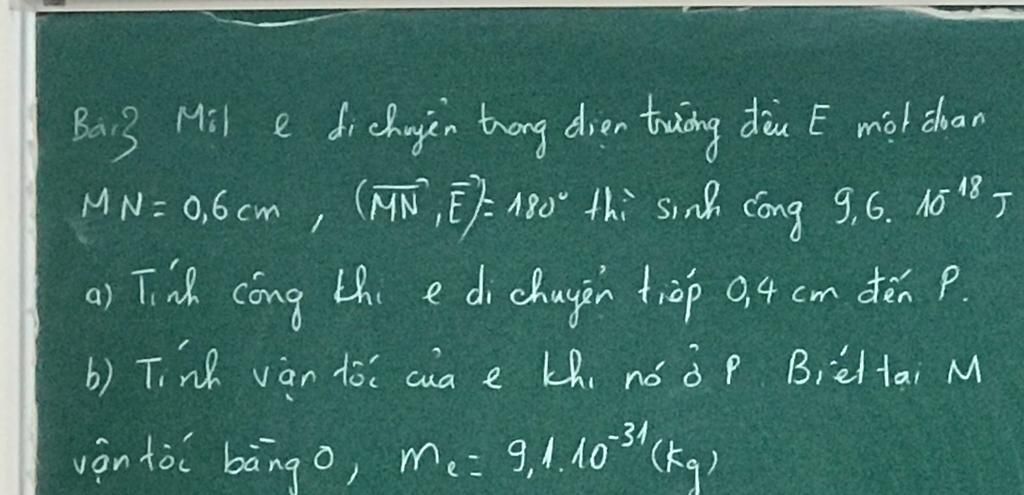 Bài 3 Một e di chuyển trong điện trường đều E một đoạn
MN = 0,6 cm , (MN, E) = 180° thì sinh công 9,6. 10⁻¹⁸ J
a) Tính công khi e di chuyển tiếp 0,4 cm đến P.
b) Tính vận tốc của e khi nó ở P. Biết tại M
vận tốc bằng 0, mₑ = 9,1.10⁻³¹ (kg)